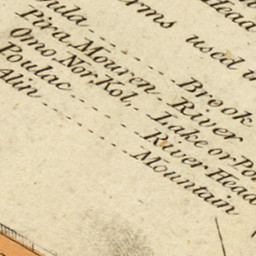 Head
Terms used in
ula - - - - - - Brook
Pira Mouren - - - River
Omo Nor Kol, - Lake or Po
Poulac - - - - - River Head
Alin - - - - - - Mountain